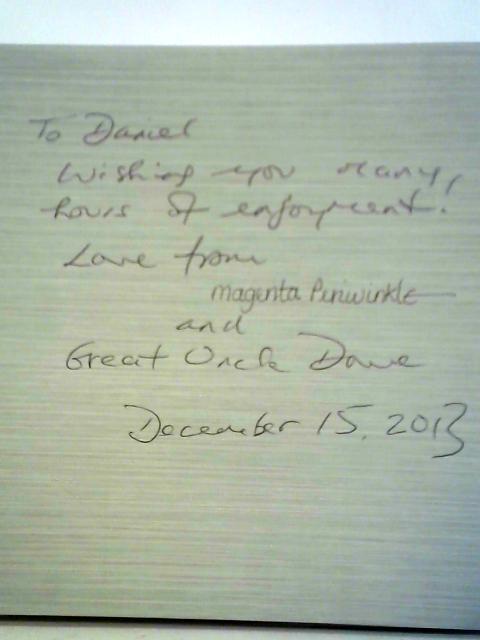 To Daniel
Wishing you many,
hours of enjoyment!
Love from
magenta Periwinkle
and
Great Uncle Dave
December 15, 2013